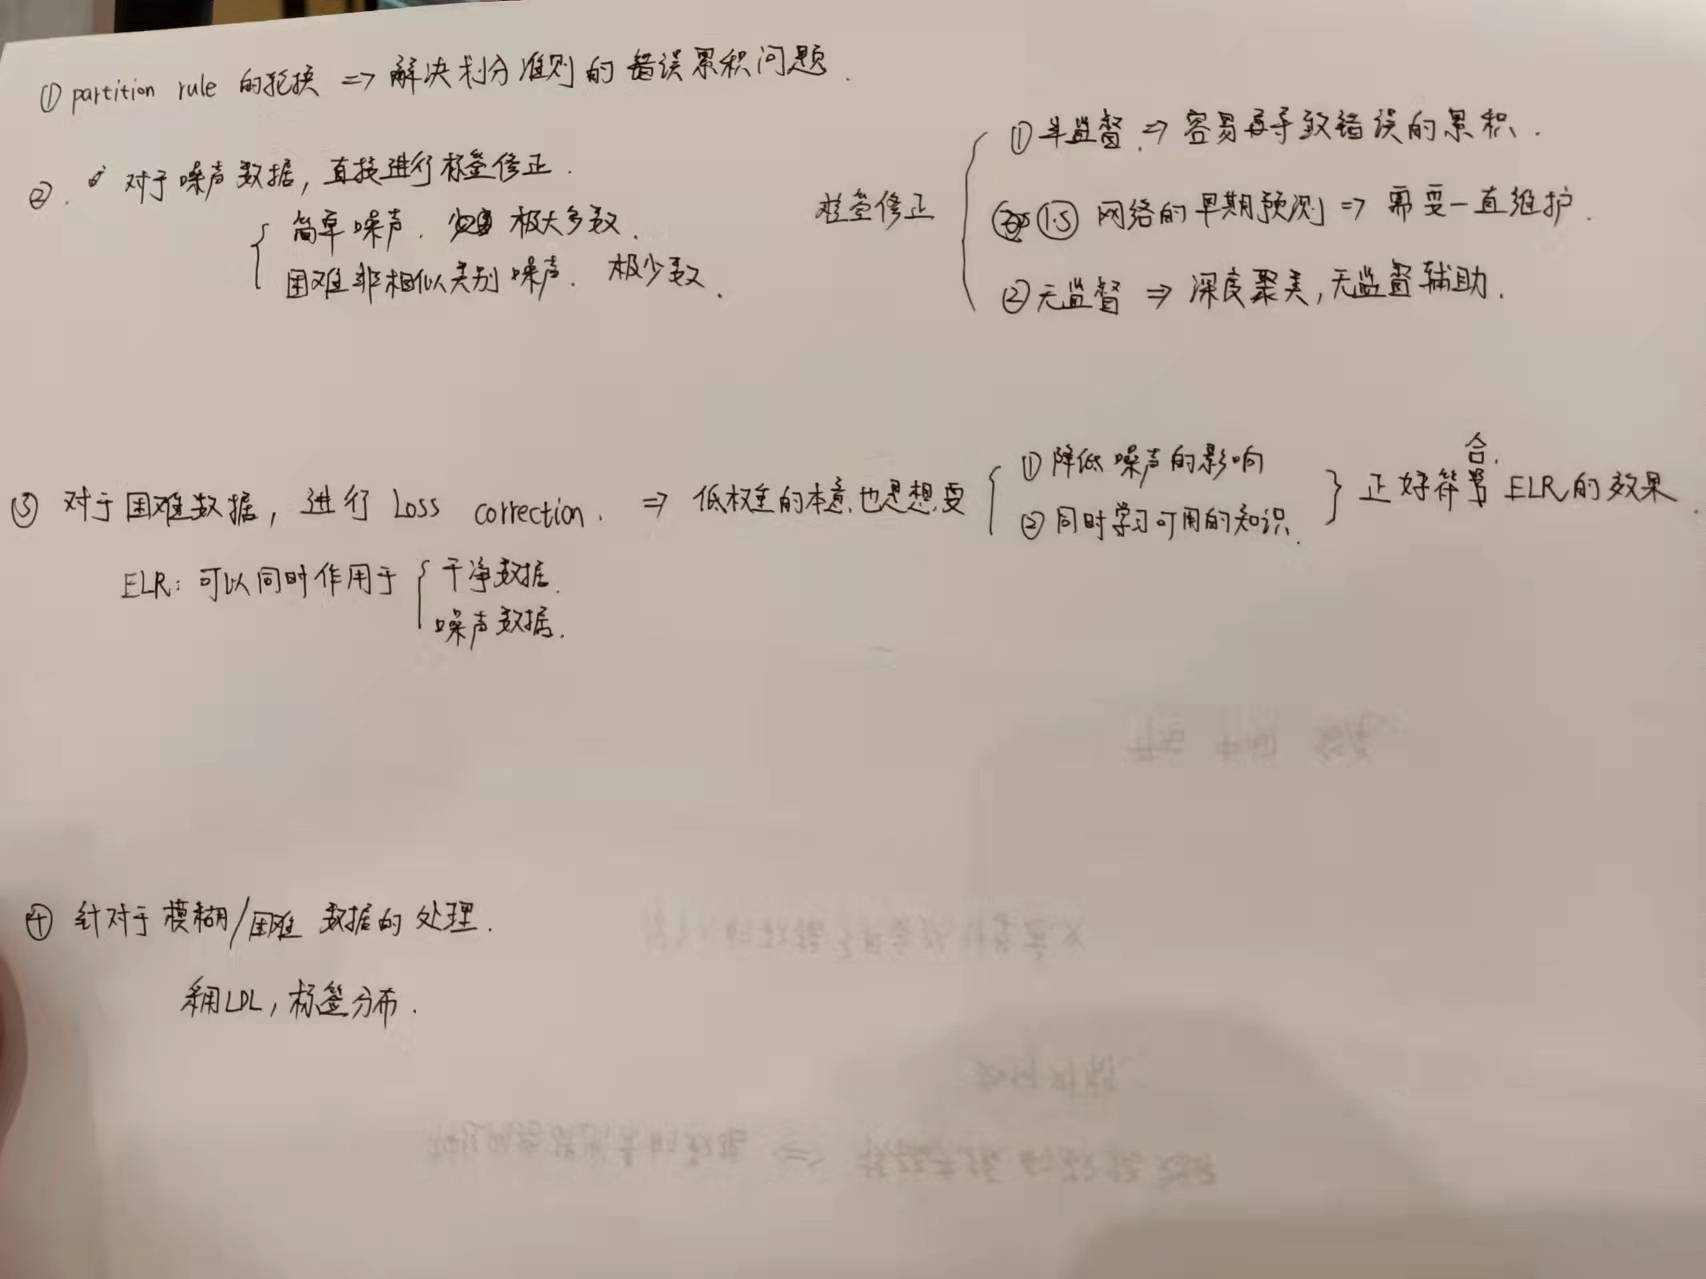 ① partition rule 的轮换 => 解决划分准则的错误累积问题.
②. 对于噪声数据, 直接进行标签修正.
{ 简单噪声. 极大多数.
困难非相似类别噪声. 极少数.
标签修正 {
① 半监督 => 容易导致错误的累积.
①.5 网络的早期预测 => 需要一直维护.
② 无监督 => 深度聚类, 无监督辅助.
③ 对于困难数据, 进行 Loss correction. => 低权重的本意也是想要 { ① 降低噪声的影响
② 同时学习可用的知识. } 正好符合 ELR 的效果.
ELR: 可以同时作用于 { 干净数据.
噪声数据.
④ 针对于模糊/困难 数据的处理.
利用LDL, 标签分布.